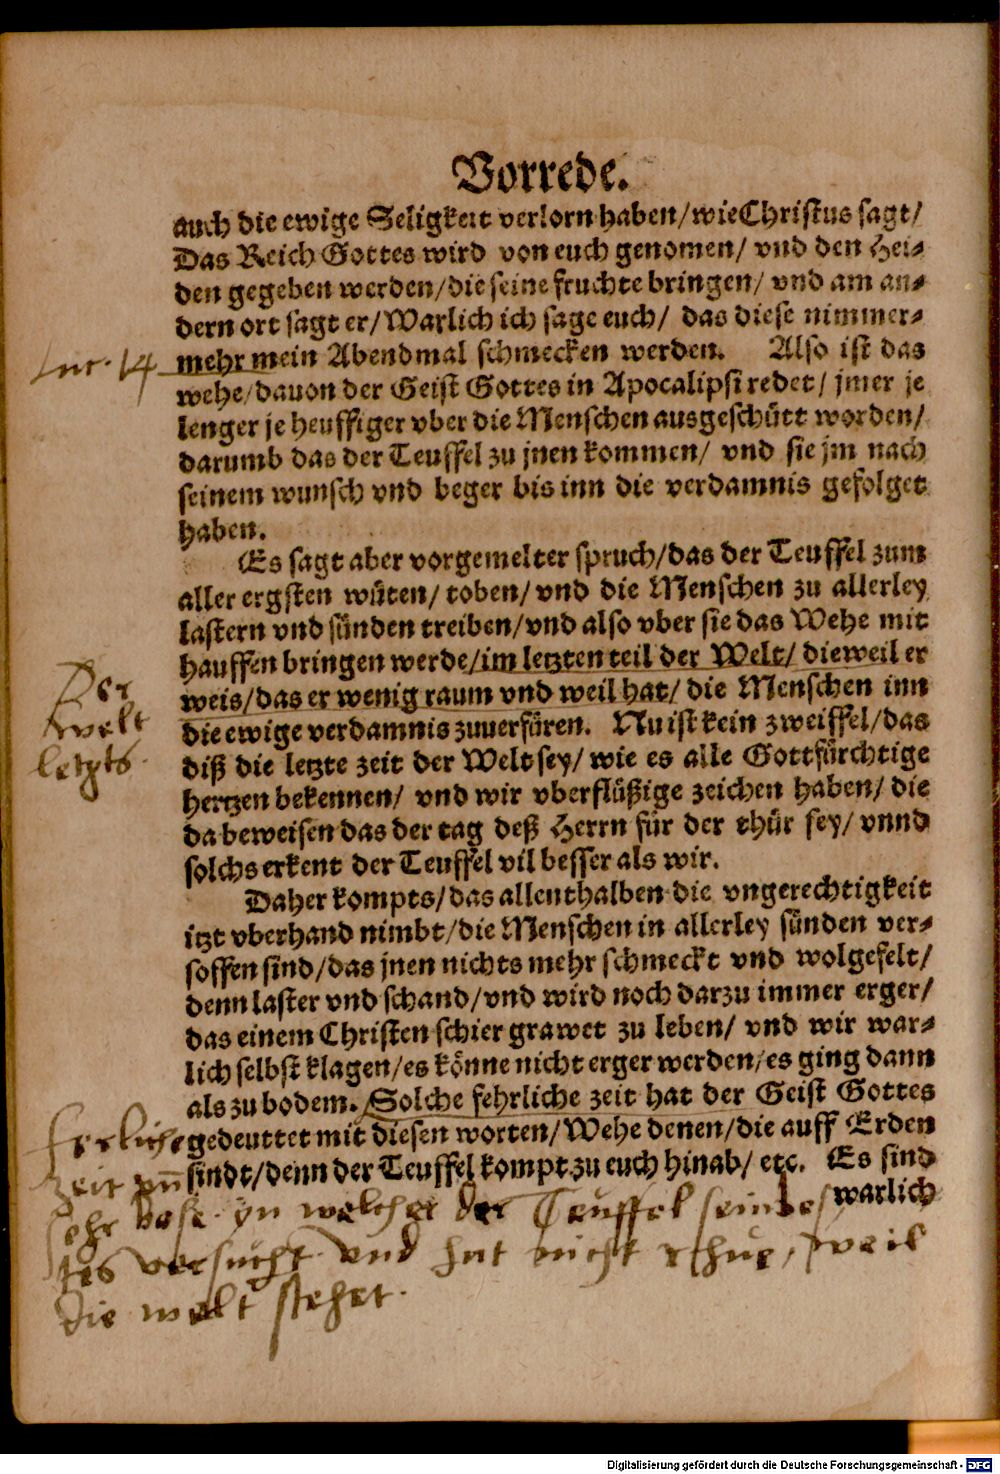 Vorrede.
auch die ewige Seligkeit verlorn haben/wie Christus sagt/
Das Reich Gottes wird von euch genomen/ vnd den Hei⸗
den gegeben werden/die seine fruchte bringen/ vnd am an⸗
dern ort sagt er/Warlich ich sage euch/ das diese nimmer⸗
Luc. 14
mehr mein Abendmal schmecken werden. Also ist das
wehe/dauon der Geist Gottes in Apocalipsi redet/ jmer je
lenger je heuffiger vber die Menschen ausgeschütt worden/
darumb das der Teuffel zu jnen kommen/ vnd sie jm nach
seinem wunsch vnd beger bis inn die verdamnis gefolget
haben.
Es sagt aber vorgemelter spruch/das der Teuffel zum
aller ergsten wüten/ toben/ vnd die Menschen zu allerley
lastern vnd sünden treiben/vnd also vber sie das Wehe mit
hauffen bringen werde/im letzten teil der Welt/ dieweil er
weis/das er wenig raum vnd weil hat/ die Menschen inn
die ewige verdamnis zuuerfüren. Nu ist kein zweiffel/das
diß die letzte zeit der Welt sey/ wie es alle Gottfürchtige
hertzen bekennen/ vnd wir vberflüßige zeichen haben/ die
da beweisen das der tag deß Herrn für der thür sey/ vnnd
solchs erkent der Teuffel vil besser als wir.
Der
welt
letzts.
Daher kompts/das allenthalben die vngerechtigkeit
itzt vberhand nimbt/die Menschen in allerley sünden ver⸗
soffen sind/das jnen nichts mehr schmeckt vnd wolgefelt/
denn laster vnd schand/vnd wird noch darzu immer erger/
das einem Christen schier grawet zu leben/ vnd wir war⸗
lich selbst klagen/es könne nicht erger werden/es ging dann
als zu bodem. Solche fehrliche zeit hat der Geist Gottes
gedeuttet mit diesen worten/Wehe denen/die auff Erden
sindt/denn der Teuffel kompt zu euch hinab/ etc. Es sind
warlich
Ferliche
zeit vn̄
sehr bose. yn welcher der Teuffel
versucht vnd hat nicht rhue, weil
die welt stehet.
Digitalisierung gefördert durch die Deutsche Forschungsgemeinschaft - DFG